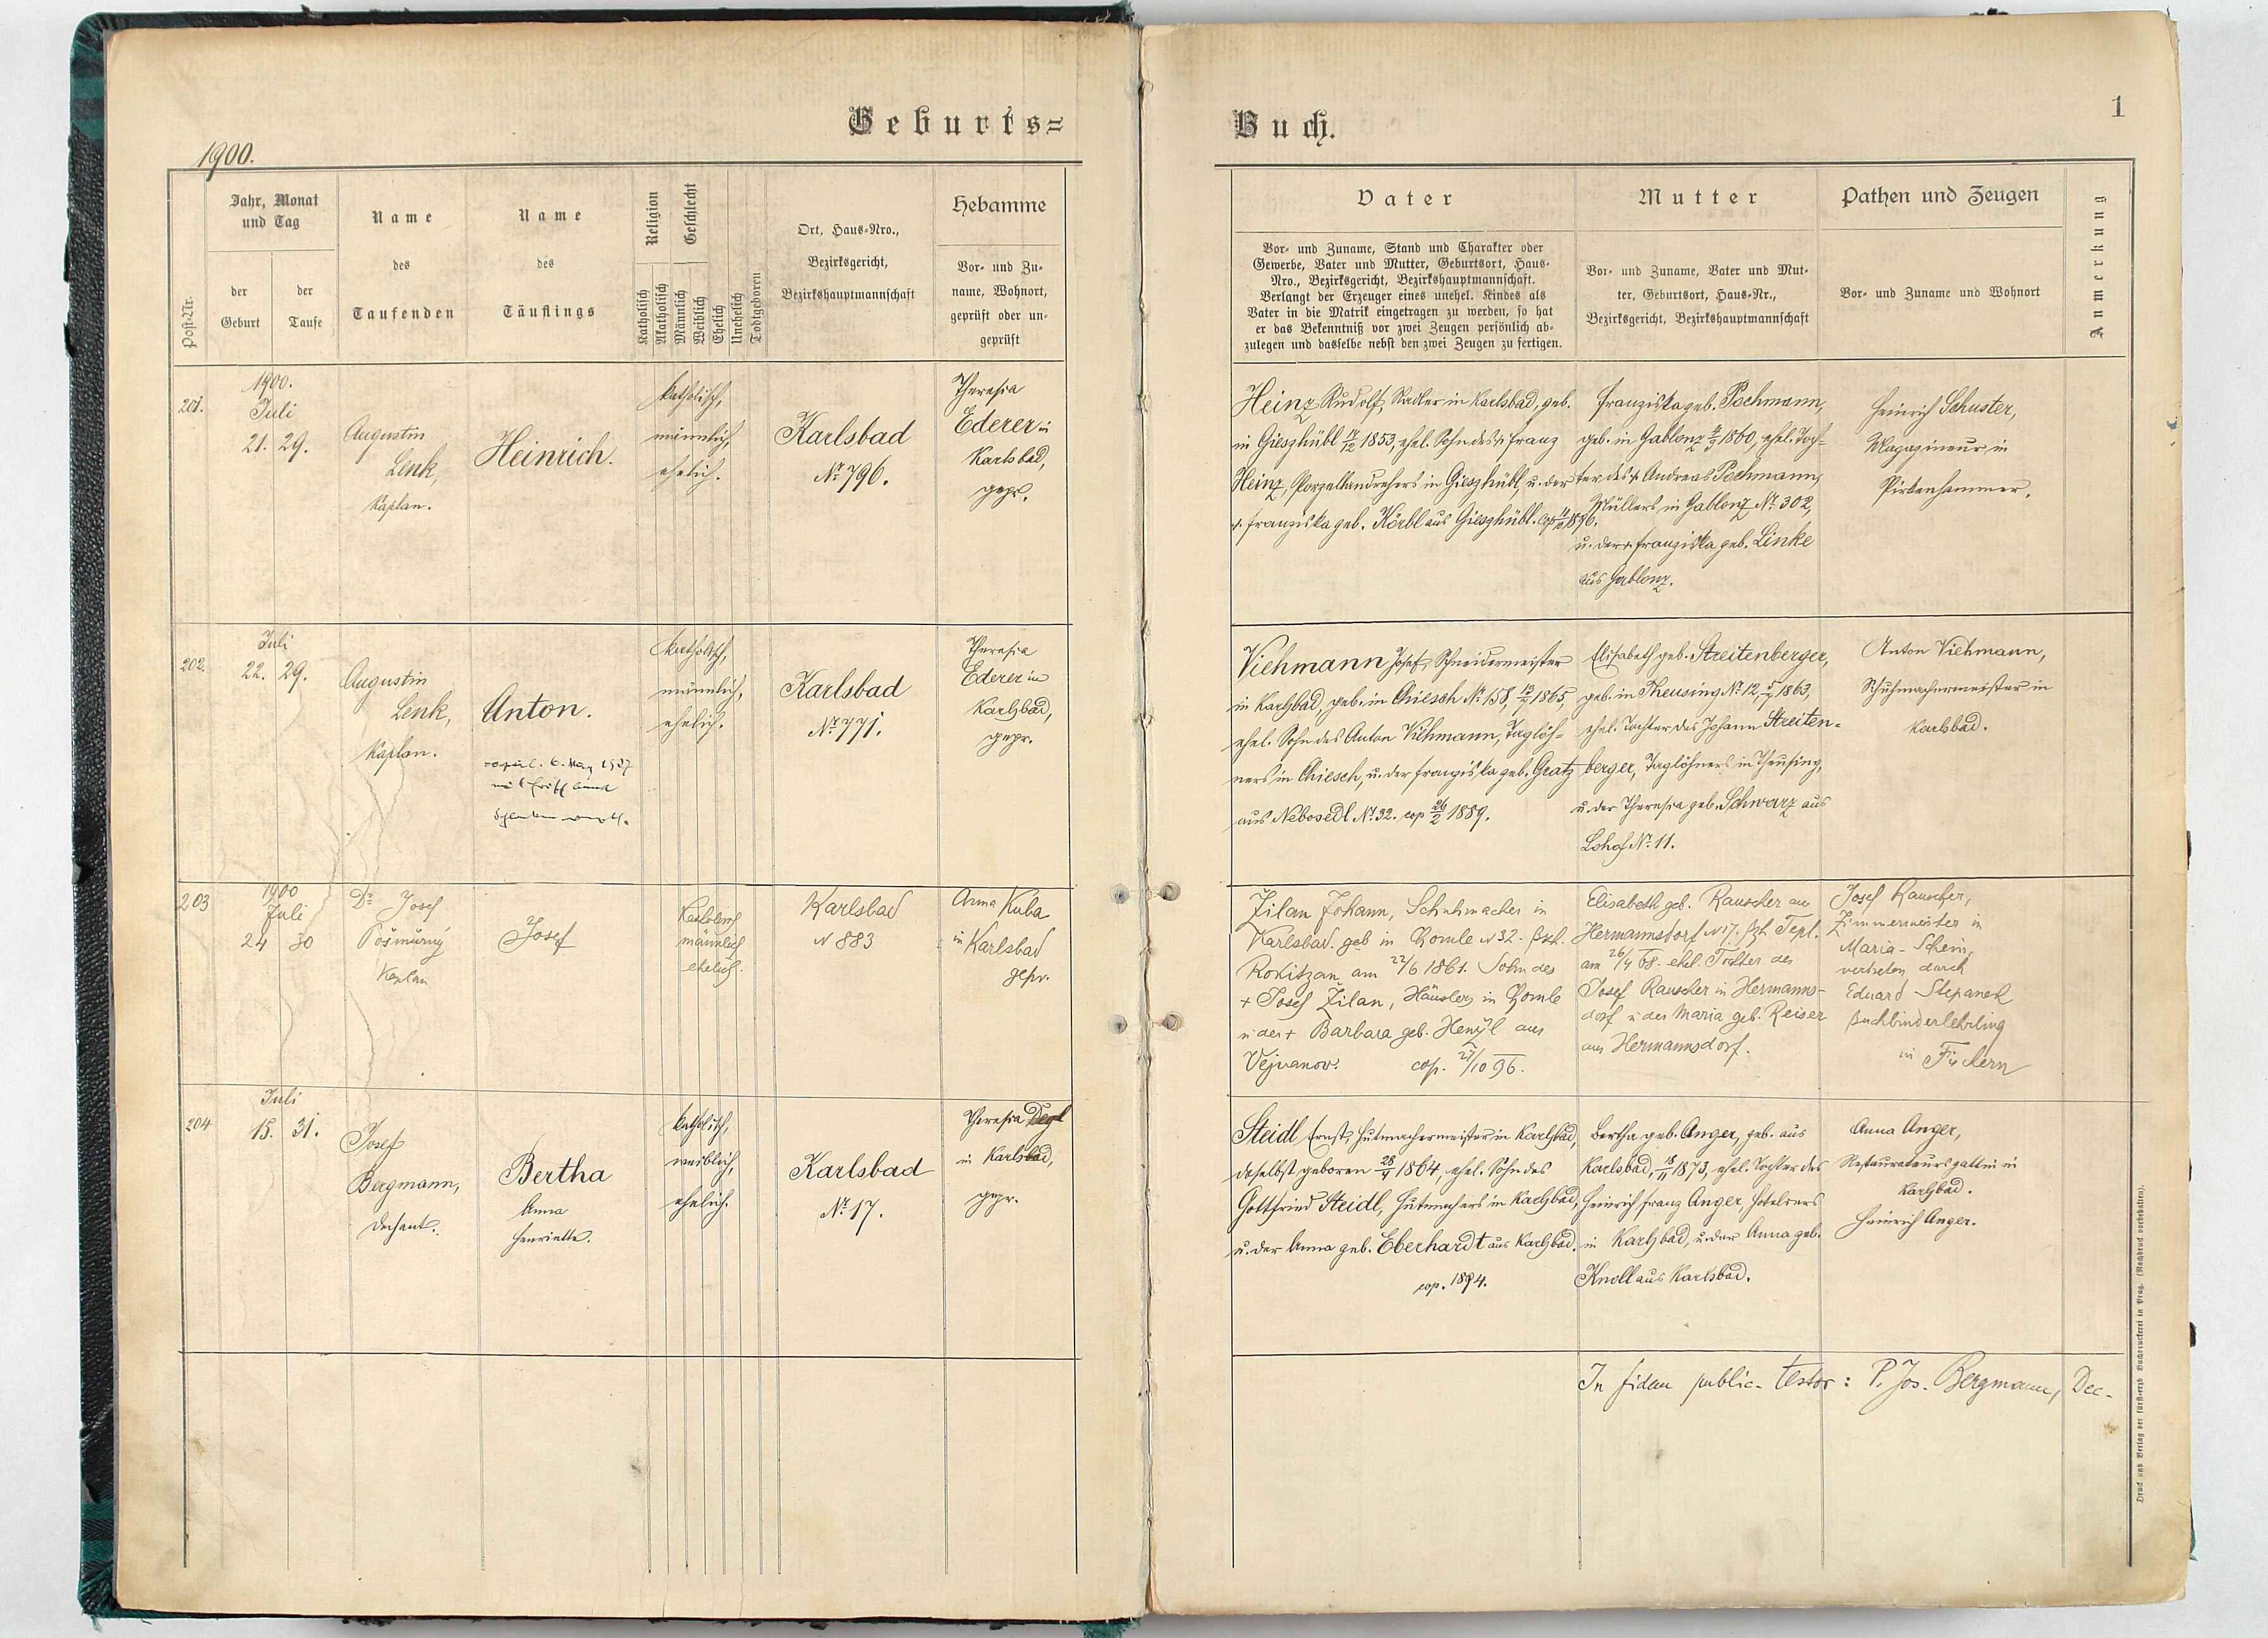 Geburts=
1900.
Post-Nr.
Jahr, Monat
und Tag
der
Geburt
der
Taufe
Name
des
Taufenden
Name
des
Täuflings
Religion
Geschlecht
Katholisch
Akatholisch
Männlich
Weiblich
Ehelich
Unehelich
Todtgeboren
Ort, Haus-Nro.,
Bezirksgericht,
Bezirkshauptmannschaft
Hebamme
Vor- und Zu-
name, Wohnort,
geprüft oder un-
geprüft
201.
1900.
Juli
21. 29.
Augustin
Lenk,
Kaplan.
Heinrich.
katholisch,
männlich,
ehelich.
Karlsbad
Nr. 796.
Theresia
Ederer in
Karlsbad,
gepr.
202.
Juli
22. 29.
Augustin
Lenk,
Kaplan.
Anton.
katholisch,
männlich,
ehelich.
Karlsbad
Nr. 771.
Theresia
Ederer in
Karlsbad,
gepr.
203
1900
Juli
24 30
Dr Josef
Pošmürný
Kaplan
Josef
Katholisch
männlich
ehelich.
Karlsbad
N 883
Anna Kuba
in Karlsbad
gepr.
204
Juli
15. 31.
Josef
Bergmann,
Dechant.
Bertha
Anna
Henriette.
katholisch,
weiblich,
ehelich.
Karlsbad
Nr. 17.
Theresia
in Karlsbad,
gepr.
Buch.
1
Vater
Vor- und Zuname, Stand und Charakter oder
Gewerbe, Vater und Mutter, Geburtsort, Haus-
Nro., Bezirksgericht, Bezirkshauptmannschaft.
Verlangt der Erzeuger eines unehel. Kindes als
Vater in die Matrik eingetragen zu werden, so hat
er das Bekenntniß vor zwei Zeugen persönlich ab-
zulegen und dasselbe nebst den zwei Zeugen zu fertigen.
Mutter
Vor- und Zuname, Vater und Mut-
ter, Geburtsort, Haus-Nr.,
Bezirksgericht, Bezirkshauptmannschaft
Pathen und Zeugen
Vor- und Zuname und Wohnort
Anmerkung
Heinz Rudolf, Nadler in Karlsbad, geb.
in Gieszhübl 1853, ehel. Sohn des † Franz
Heinz, Porzellandrehers in Gieszhübl, u. der
† Franziska geb. Körbl aus Gieszhübl. cop. 1896.
Franziska geb. Pochmann,
geb. in Gablonz 1860, ehel. Toch-
ter des † Andreas Pochmann,
Müllers in Gablonz Nr. 302,
u. der † Franziska geb. Linke
aus Gablonz.
Heinrich Schuster,
Magazineur in
Pirkenhammer.
Viehmann Josef, Schneidermeister
in Karlsbad, geb. in Chiesch Nr. 158, 1865,
ehel. Sohn des Anton Viehmann, Taglöh-
ners in Chiesch, u. der Franziska geb. Gratz
aus Nebosedl Nr. 32. cop 26/2 1889.
Elisabeth geb. Streitenberger,
geb. in Theusing Nr. 12, 1863,
ehel. Tochter des Johann Streiten-
berger, Taglöhners in Theusing,
u. der Theresia geb. Schwarz aus
Lohof Nr. 11.
Anton Viehmann,
Schuhmachermeister in
Karlsbad.
Žilan Johann, Schuhmacher in
Karlsbad. geb in Chomle N 32. Bzk.
Rokitzan am 22/6 1861. Sohn des
+ Josef Žilan, Häusler in Chomle
u der + Barbara geb. Henzl aus
Vejvanov. cop. 27/10 96.
Elisabeth geb. Rauscher aus
Hermannsdorf N 17. Bzk Tepl.
am 26/4 68. ehel. Tochter des
Josef Rauscher in Hermanns-
dorf u der Maria geb. Reiser
aus Hermannsdorf.
Josef Rauscher,
Zimmermeister in
Maria-Schein,
vertreten durch
Eduard Stepanek
Buchbinderlehrling
in Fischern
Steidl Ernst, Hutmachermeister in Karlsbad,
daselbst geboren 1864, ehel. Sohn des
Gottfried Steidl, Hutmachers in Karlsbad,
u. der Anna geb. Eberhardt aus Karlsbad.
cop. 1894.
Bertha geb. Anger, geb. aus
Karlsbad, 18/11 1873, ehel. Tochter des
Heinrich Franz Anger, Hoteliers
in Karlsbad, u. der Anna geb.
Knoll aus Karlsbad.
Anna Anger,
Restaurateursgattin in
Karlsbad.
Heinrich Anger.
In fidem public. testor: P. Jos. Bergmann, Dec-
Druck und Verlag der fürst-erzb. Buchdruckerei in Prag. (Nachdruck vorbehalten).